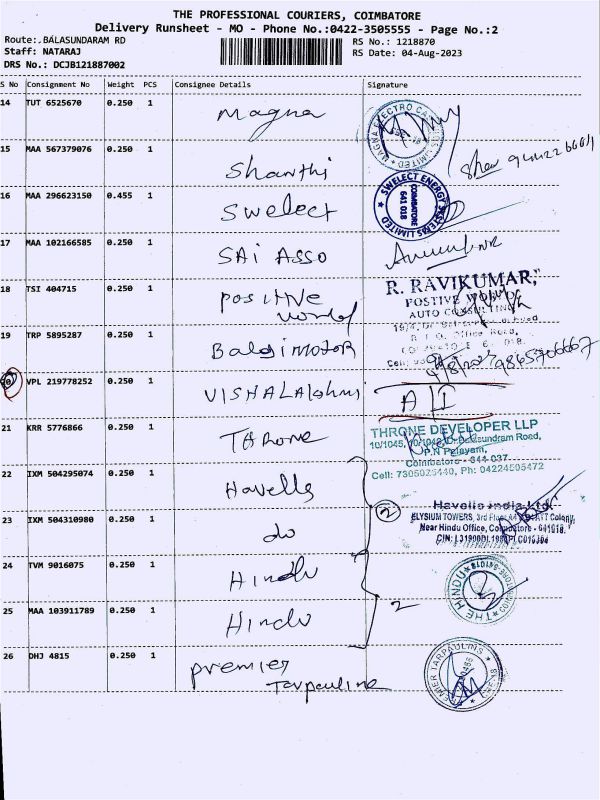 THE PROFESSIONAL COURIERS, COIMBATORE
Delivery Runsheet - MO - Phone No.:0422-3505555 - Page No.:2
Route:.BALASUNDARAM RD
RS No.: 1218870
Staff: NATARAJ
RS Date: 04-Aug-2023
DRS No.: DCJB121887002
S No Consignment No Weight PCS Consignee Details Signature
14 TUT 6525670 0.250 1 Magna
MAGNA ELECTRO LIMITED
15 MAA 567379076 0.250 1 Shanthi
16 MAA 296623150 0.455 1 Swelect
SWELECT ENERGY SYSTEMS LIMITED
COIMBATORE
641 018
17 MAA 102166585 0.250 1 SAi ASSO
18 TSI 404715 0.250 1 positive
world
R. RAVIKUMAR,
POSTIVE WORLD
AUTO CONSULTING
19 TRP 5895287 0.250 1 Balaji MOTOR
9865706667
20 VPL 219778252 0.250 1 VISHALAkshmi
21 KRR 5776866 0.250 1 THRone
THRONE DEVELOPER LLP
10/1045, 10/1046, Dr.Balasundram Road,
P.N Palayam,
Coimbatore - 641 037
Cell: 7305025440, Ph: 04224505472
22 IXM 504295074 0.250 1 Havells
2
Havells India Ltd.
ELYSIUM TOWERS, 3rd Floor Colony,
Near Hindu Office, Coimbatore - 641018.
23 IXM 504310980 0.250 1 do
24 TVM 9016075 0.250 1 Hindu
THE HINDU
25 MAA 103911789 0.250 1 Hindu
2
26 DHJ 4815 0.250 1 premier
Tarpauline
PREMIER TARPAULINS